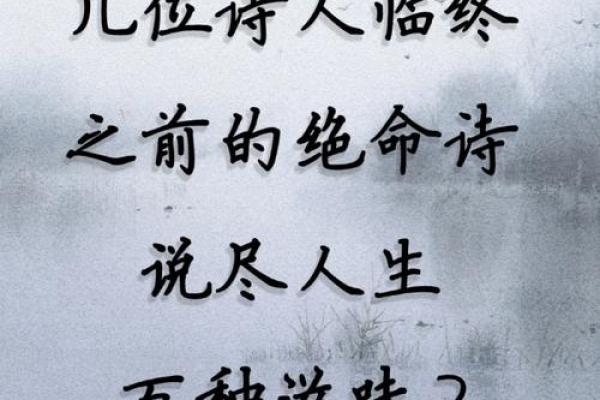 几位诗人临终
之前的绝命诗
说尽人生
百种滋味？